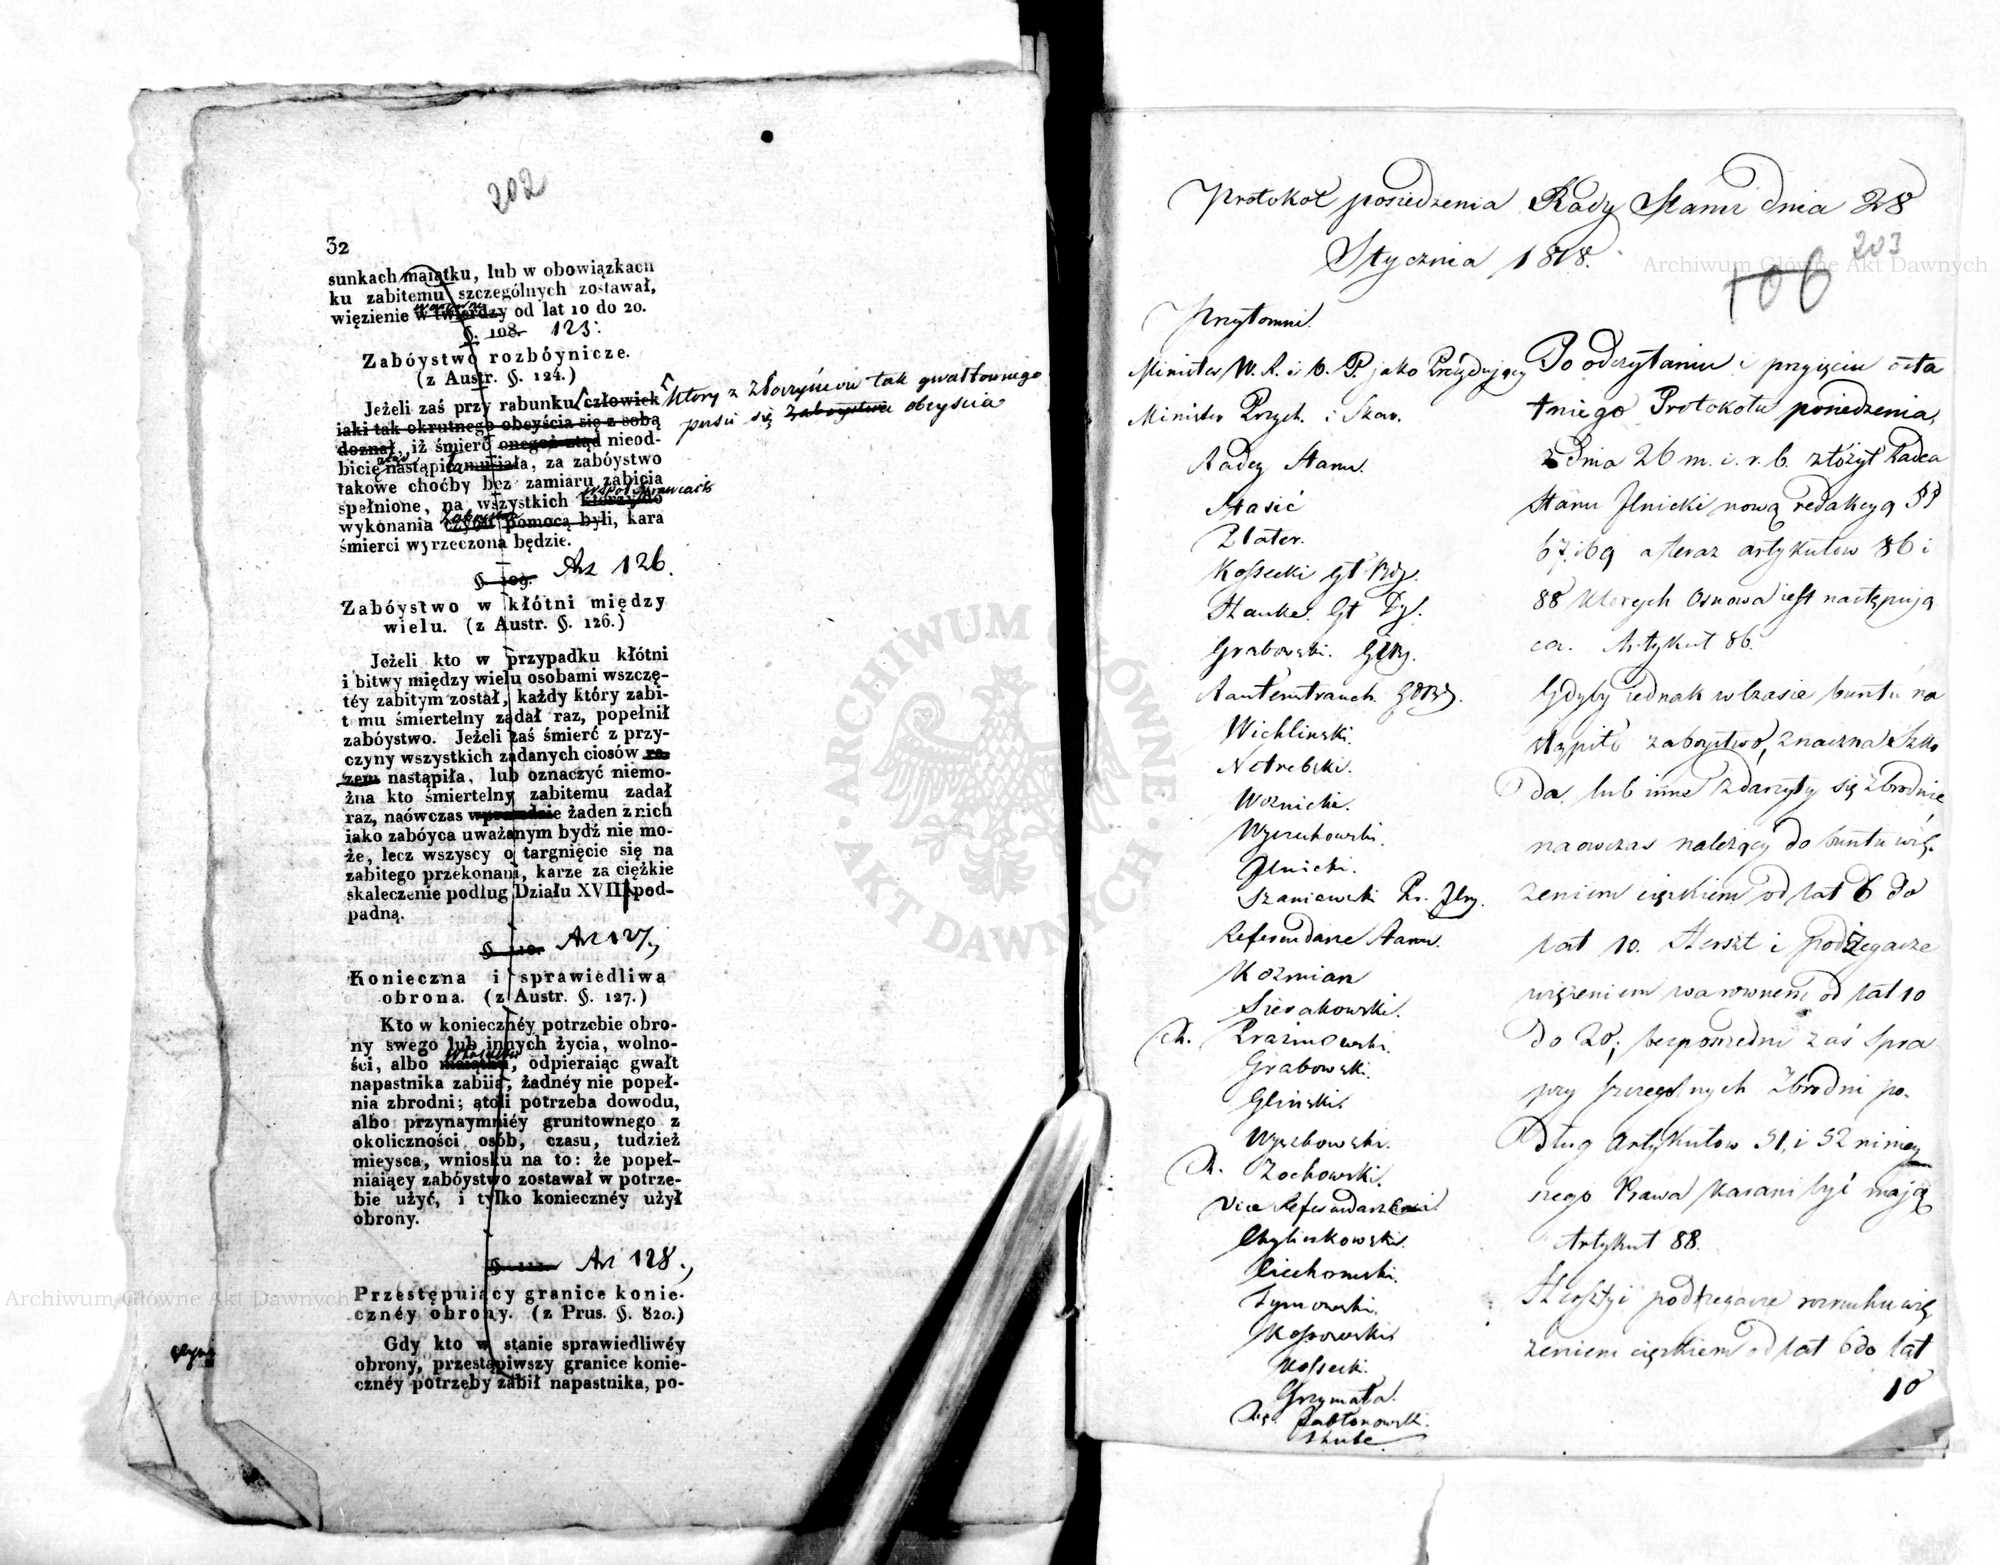 202
32
sunkach maiątku, lub w obowiązkach
ku zabitemu szczególnych zostawał,
warowne
więzienie w twierdzy od lat 10 do 20.
§. 108. 125.
Zabóystwo rozbóynicze.
(z Austr. §. 124.)
Jeżeli zaś przy rabunku człowiek
który z złoczyńców tak gwałtownego
iaki tak okrutnego obeyścia się z sobą
się zabóystwa obeyścia
doznał, iż śmierć onegoż ztąd nieod-
bicie nastąpić musiała, za zabóystwo
takowe choćby bez zamiaru zabicia
spełnione, na wszystkich którzy do
wykonania czynu pomocą byli, kara
śmierci wyrzeczona będzie.
§. 109. Ar 126.
Zabóystwo w kłótni między
wielu. (z Austr. §. 126.)
Jeżeli kto w przypadku kłótni
i bitwy między wielu osobami wszczę-
téy zabitym został, każdy który zabi-
t mu śmiertelny zadał raz, popełnił
zabóystwo. Jeżeli zaś śmierć z przy-
czyny wszystkich zadanych ciosów ra-
zem nastąpiła, lub oznaczyć niemo-
żna kto śmiertelny zabitemu zadał
raz, naówczas wprawdzie żaden z nich
iako zabóyca uważanym bydź nie mo-
że, lecz wszyscy o targnięcie się na
zabitego przekonani, karze za ciężkie
skaleczenie podług Działu XVII pod-
padną.
§. 110. Ar 127.
Konieczna i sprawiedliwa
obrona. (z Austr. §. 127.)
Kto w koniecznéy potrzebie obro-
ny swego lub innych życia, wolno-
własności
ści, albo maiątku, odpieraiąc gwałt
napastnika zabiia, żadnéy nie popeł-
nia zbrodni; atoli potrzeba dowodu,
albo przynaymniéy gruntownego z
okoliczności osób, czasu, tudzież
mieysca, wniosku na to: że popeł-
niaiący zabóystwo zostawał w potrze-
bie użyć, i tylko konieczney użył
obrony.
§. 111. Ar 128.
Przestępuiący granice konie-
cznéy obrony. (z Prus. §. 820.)
Gdy kto w stanie sprawiedliwéy
obrony, przestąpiwszy granice konie-
cznéy potrzeby zabił napastnika, po-
Protokół posiedzenia Rady Stanu dnia 28
Stycznia 1818.
203
106
Przytomni.
Minister W. R. i O. P. jako Prezydujący
Minister Przych. i Skar.
Radcy Stanu.
Stasic
Plater.
Kossecki
Hauke.
Grabowski.
Rautenstrauch.
Wichlinski.
Notrebski.
Woznicki.
Wyczechowski.
Ilnicki.
Szaniawski
Referendarze Stanu.
Kozmian
Sierakowski.
X. Prazmowski.
Grabowski.
Glinski
Wyzbowski.
X. Zochowski.
Vice Referendarze
Chylickowski.
Ciechomski.
Tymowski.
Kossowski
Kossecki.
Grzymała.
Xże Jabłonowski.
Skube.
Po odczytaniu i przyjęciu osta
tniego Protokołu posiedzenia,
z dnia 26 m. i. r. b. złożył Radca
Stanu Ilnicki nową redakcyą §§
67. i 69 a teraz artykułow 86 i
88 których osnowa iest następują
ca. Artykuł 86.
Gdyby iednak w czasie buntu na
stąpiło zaboystwo, znaczna szko
da, lub inne zdarzyły się zbrodnie
naowczas należący do buntu wię-
zieniem ciężkiem od lat 6 do
lat 10. Herszt i podżegacze
więzieniem warownem od lat 10
do 20; bezposrednii zaś spra
wcy szczegolnych zbrodni po-
dług Artykułow 51, i 52 niniey
szego Prawa karani być mają
Artykuł 88.
Herszty i podżegacze rozruchu wię
zieniem ciężkiem od lat 6 do lat
10
Archiwum Główne Akt Dawnych
Archiwum Główne Akt Dawnych
ARCHIWUM GŁÓWNE AKT DAWNYCH